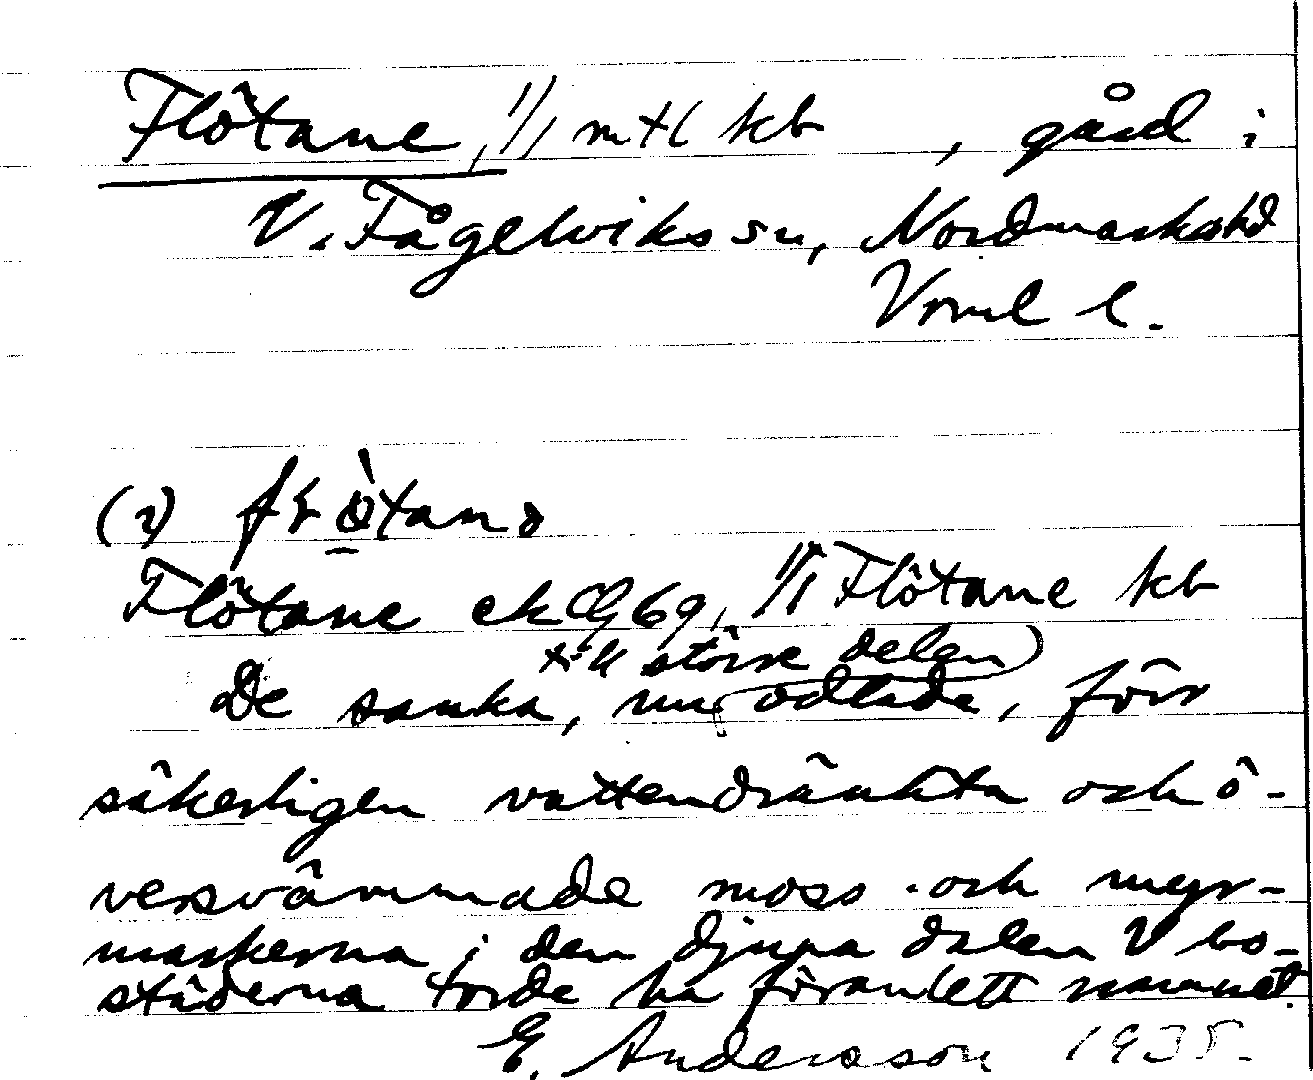 Flötane, 1/1 mtl kb, gård i
V. Fågelviks sn, Nordmarks hd
Vrml l.
(2)
Flötane ek 69, 1/1 Flötane kb
till större delen
De sanka, nu odlade, förr
säkerligen vattendränkta och ö-
versvämmade moss- och myr-
markerna i den djupa dalen V bo-
städerna torde ha föranlett namnet.
E. Andersson 1935.